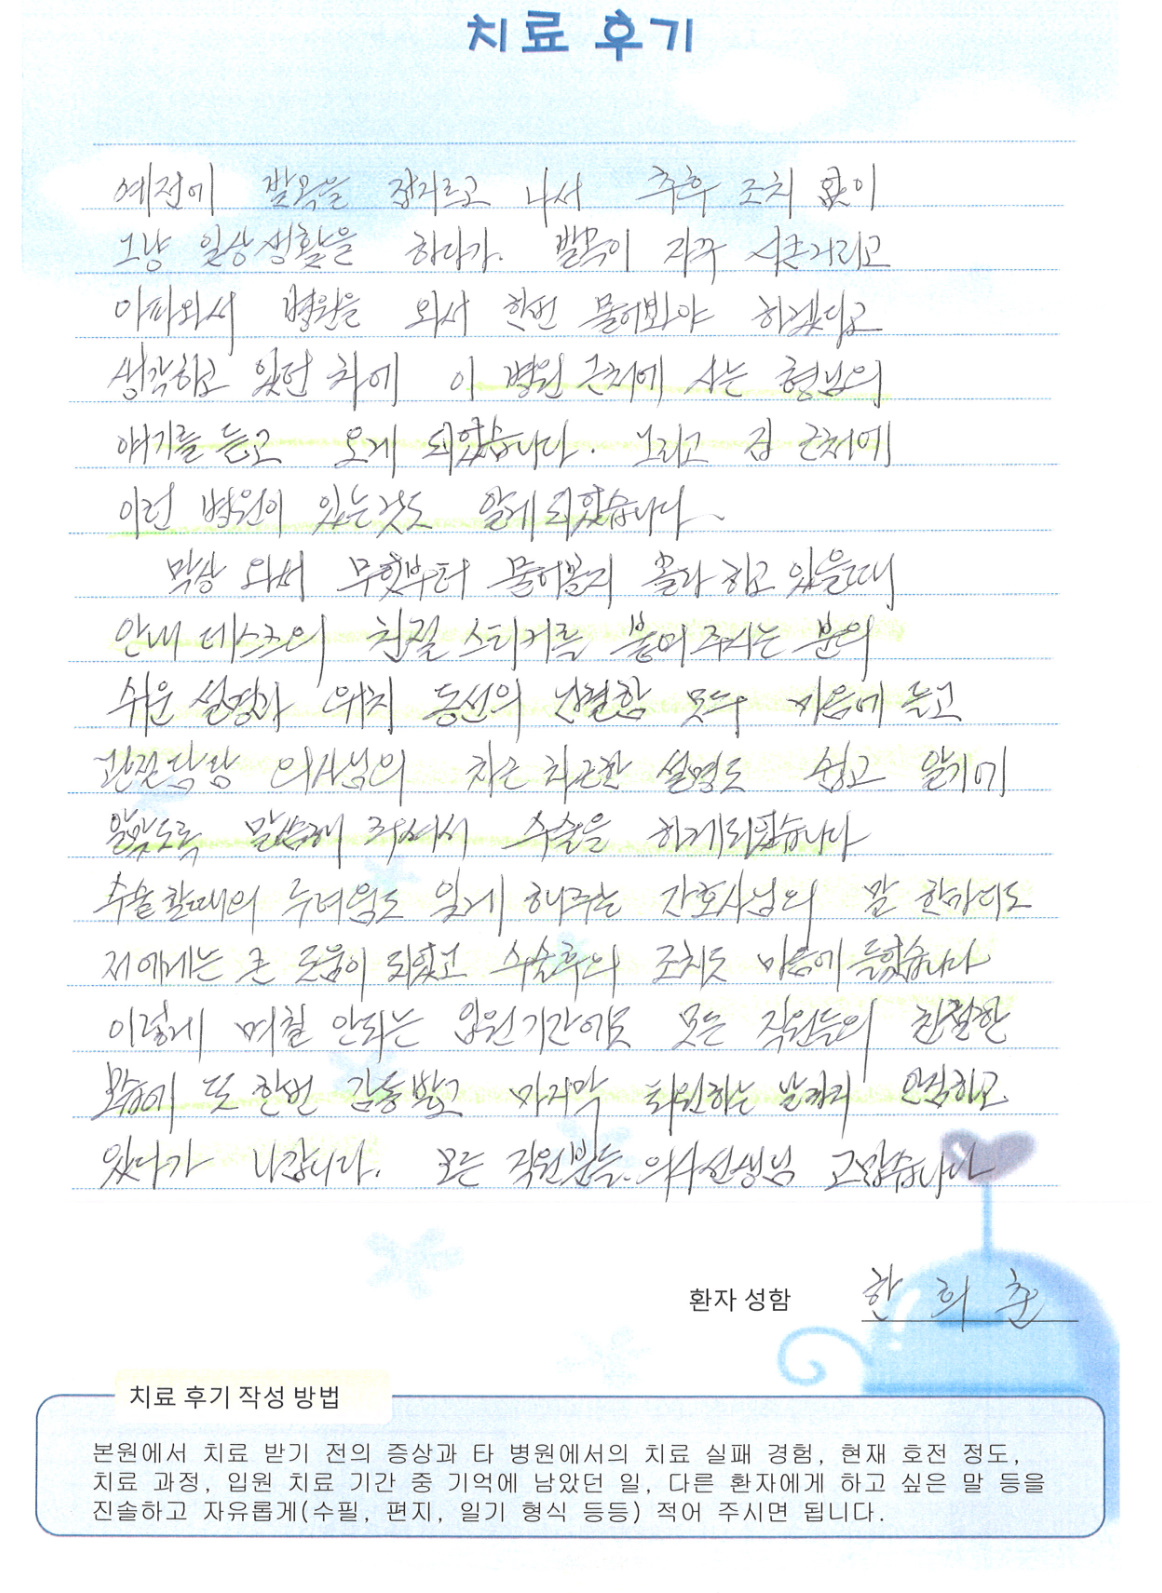 치료 후기
예전에 발목을 장기르고 나서 추후 조치 없이
그냥 일상생활을 하다가. 발목이 자주 시큰거리고
아파와서 병원을 와서 한번 물어봐야 하겠다고
생각하고 있던 차에 이 병원 근처에 사는 형님의
얘기를 듣고 오게 되었습니다. 그리고 집 근처에
이런 병원이 있는것도 알게되었습니다.
막상 와서 무엇부터 물어볼지 몰라 하고 있을때
안내 데스크의 친절 스티커를 붙여주시는 분의
쉬운 설명과 위치 동선의 간결함 모두 마음에 들고
관절담당 의사님의 차근차근한 설명도 쉽고 알기에
알맞도록 말씀해 주셔서 수술을 하게되었습니다
수술할때의 두려움도 잊게 해주는 간호사님의 말 한마디도
저에게는 큰 도움이 되었고 수술후의 조치도 마음에 들었습니다
이렇게 며칠 안되는 입원기간에도 모든 직원들의 친절한
모습에 또 한번 감동받고 마지막 퇴원하는 날까지 안심하고
있다가 나갑니다. 모든 직원분들. 의사선생님 고맙습니다
환자 성함 한 희 춘
치료 후기 작성 방법
본원에서 치료 받기 전의 증상과 타 병원에서의 치료 실패 경험, 현재 호전 정도,
치료 과정, 입원 치료 기간 중 기억에 남았던 일, 다른 환자에게 하고 싶은 말 등을
진솔하고 자유롭게(수필, 편지, 일기 형식 등등) 적어 주시면 됩니다.